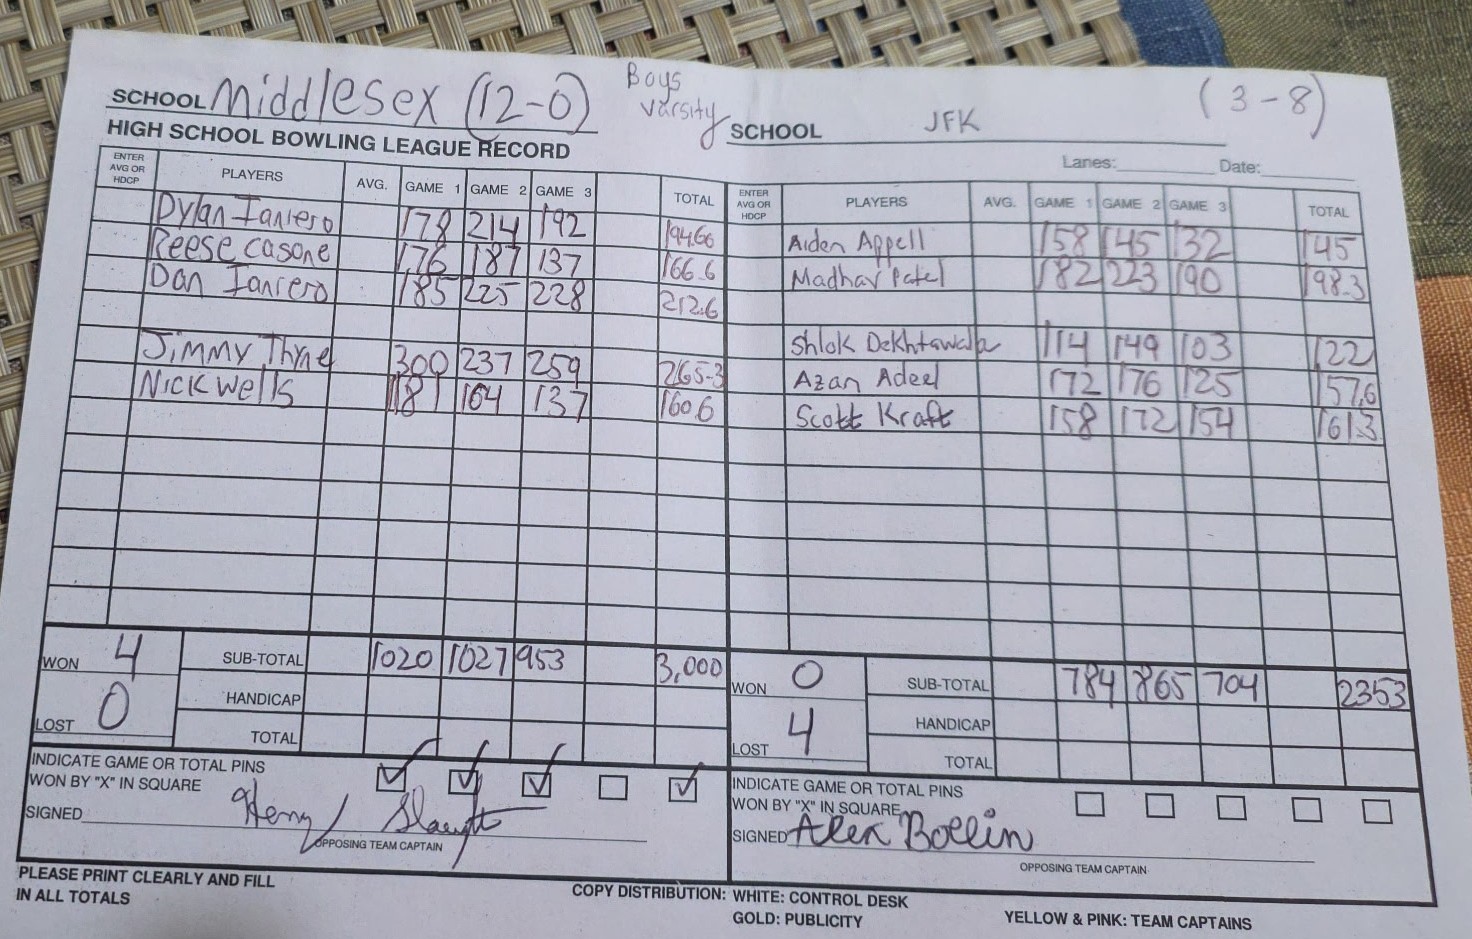 SCHOOL Middlesex (12-0) Boys Varsity
HIGH SCHOOL BOWLING LEAGUE RECORD
ENTER AVG OR HDCP PLAYERS AVG. GAME 1 GAME 2 GAME 3 TOTAL
Dylan Ianiero 178 214 192 194.66
Reese Casone 176 187 137 166.6
Dan Ianiero 185 225 228 212.6
Jimmy Thyne 300 237 259 265.3
Nick Wells 181 164 137 160.6
WON 4 SUB-TOTAL 1020 1027 953 3,000
HANDICAP
LOST 0 TOTAL
INDICATE GAME OR TOTAL PINS
WON BY "X" IN SQUARE
SIGNED Henry
OPPOSING TEAM CAPTAIN
SCHOOL JFK (3-8)
Lanes: Date:
ENTER AVG OR HDCP PLAYERS AVG. GAME 1 GAME 2 GAME 3 TOTAL
Aiden Appell 158 145 132 145
Madhav Patel 182 223 190 198.3
Shlok Dekhtawala 114 149 103 122
Azan Adeel 172 176 125 157.6
Scott Kraft 158 172 154 161.3
WON 0 SUB-TOTAL 784 865 704 2353
HANDICAP
LOST 4 TOTAL
INDICATE GAME OR TOTAL PINS
WON BY "X" IN SQUARE
SIGNED Alex Bollin
OPPOSING TEAM CAPTAIN
PLEASE PRINT CLEARLY AND FILL
IN ALL TOTALS
COPY DISTRIBUTION: WHITE: CONTROL DESK
GOLD: PUBLICITY YELLOW & PINK: TEAM CAPTAINS